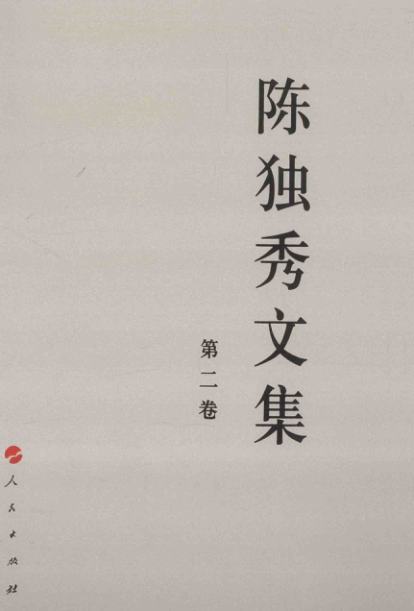 陈独秀文集
第二卷
人民出版社